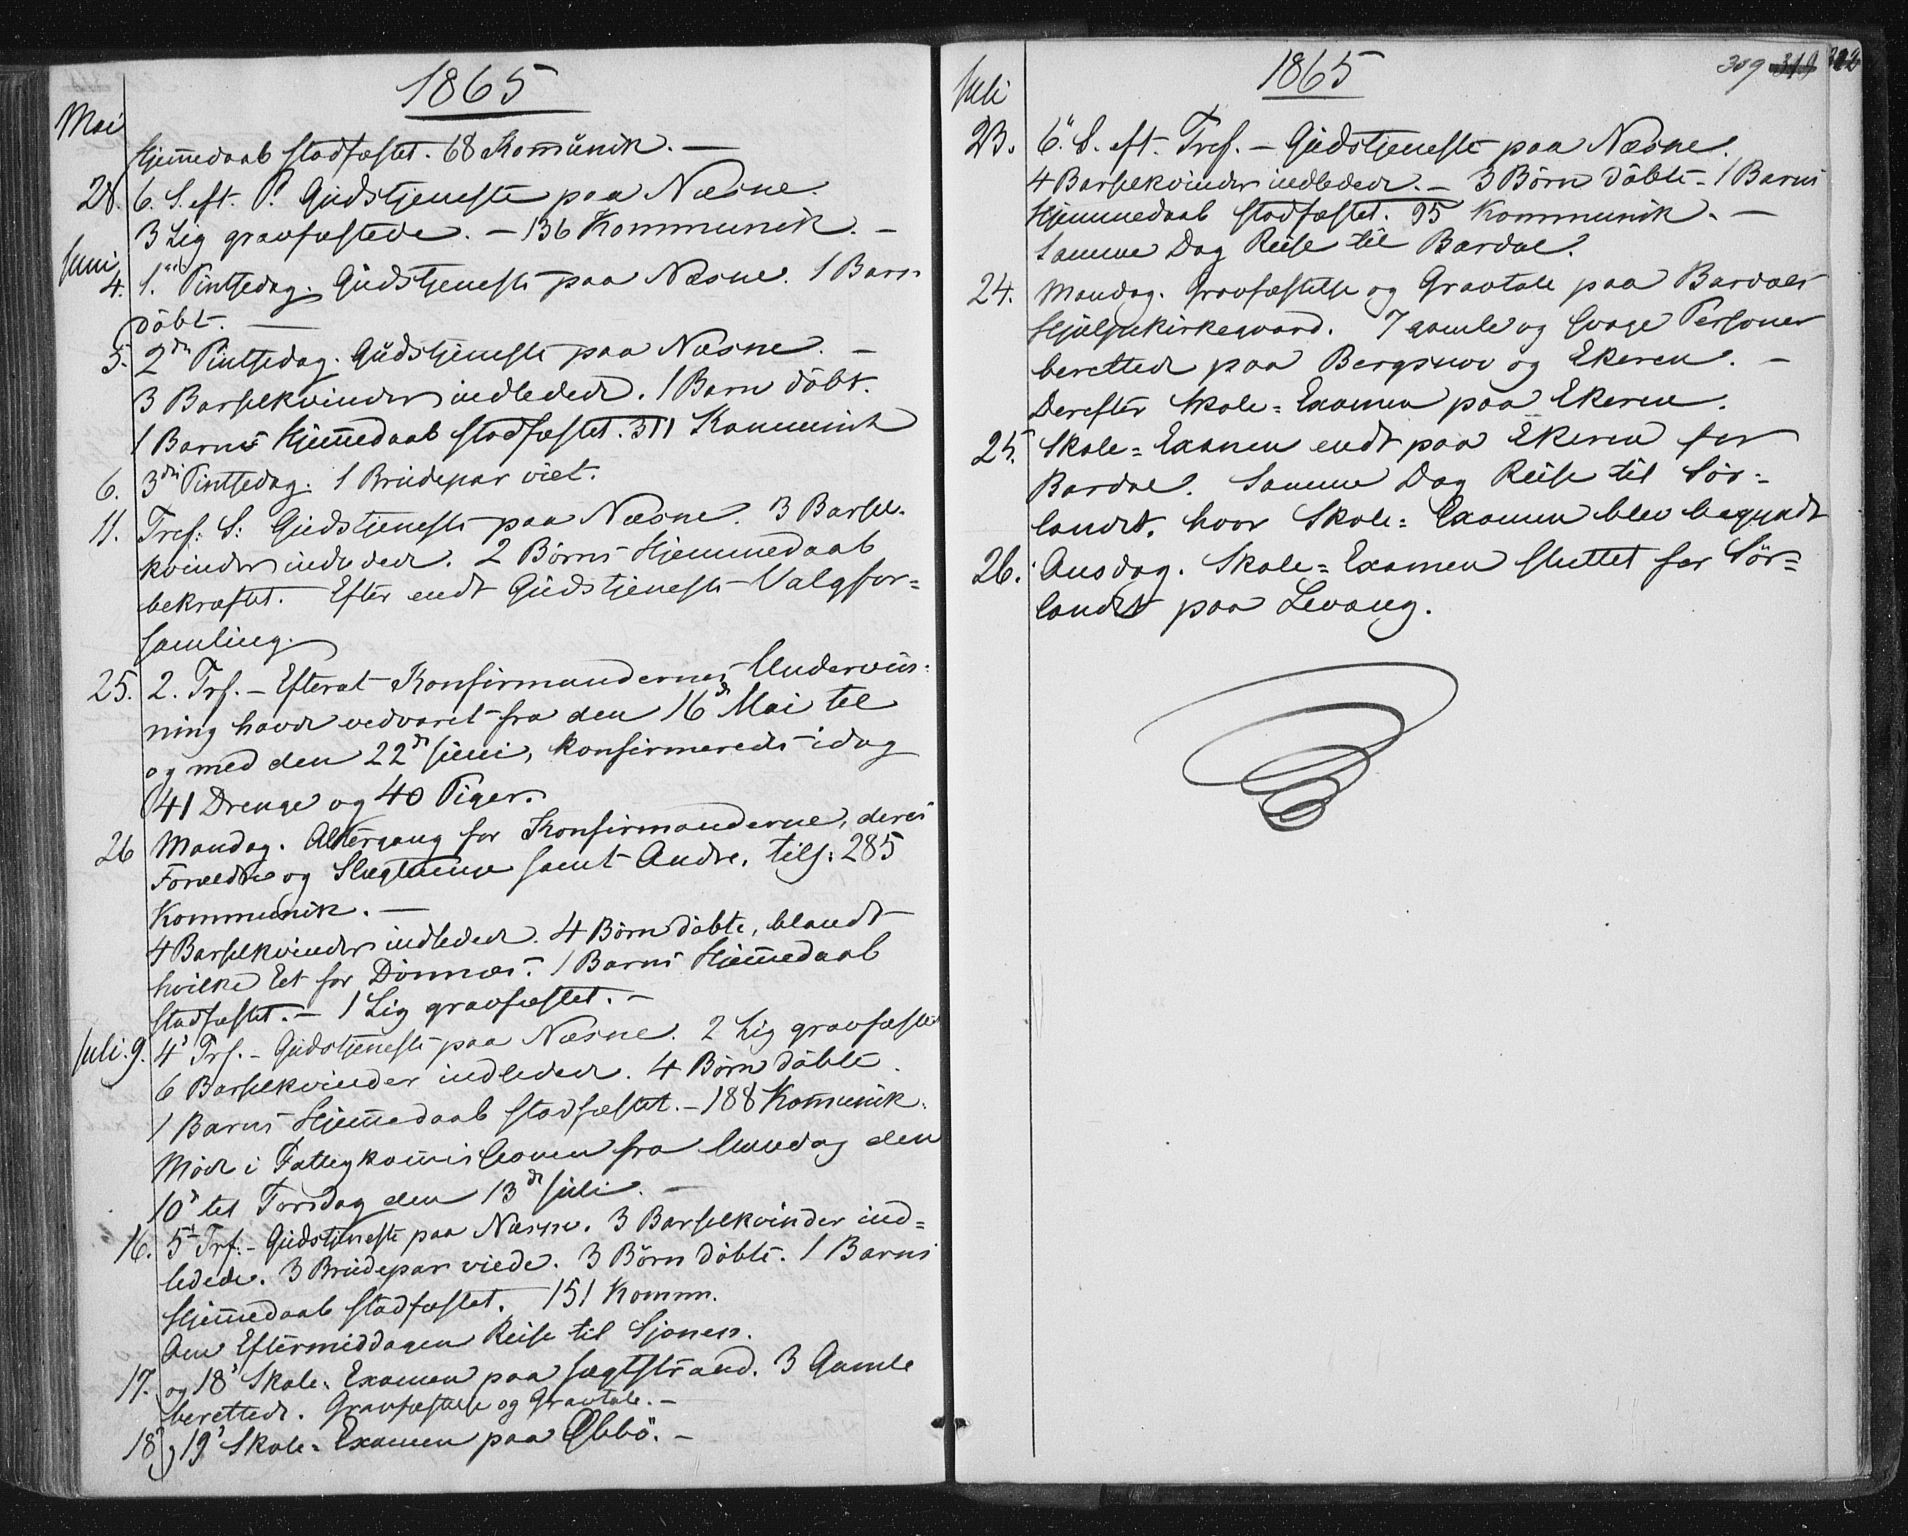 1865
Mai
Hjem̅edaab stadfæstet. 68 Kom̅unik. —
28. 6. S. eft. P. Gudstjeneste paa Næsne.
3 Lig gravfæstede. — 136 Kommunik. —
Juni
4. 1ste Pintsedag. Gudstjeneste paa Næsne. 1 Barn
döbt. —
5. 2den Pintsedag. Gudstjeneste paa Næsne. —
3 Barselkvinder indledede. 1 Barn döbt.
1 Barns Hjem̅edaab stadfæstet. 311 Kommunik
6. 3die Pintsedag. 1 Brudepar viet.
11. Tref. S: Gudstjeneste paa Næsne. 3 Barsel-
kvinder indledede. 2 Børns Hjemmedaab
bekræftet. Efter endt Gudstjeneste Valgfor=
samling.
25. 2. Trf. — Efterat Konfirmandernes Underviis=
ning havde vedvaret fra den 16d Mai til
og med den 22d Juni, konfirmeredes idag
41 Drenge og 40 Piger.
26 Mandag. Altergang for Konfirmanderne, deres
Forældre og Slægtninge samt Andre, tils: 285
Kommunik. —
4 Barselkvinder indledede. 4 Börn döbte, blandt
hvilke Et for Dönnæs. 1 Barns Hjem̅edaab
stadfæstet. — 1 Lig gravfæstet. —
Juli. 9. 4d Trf. — Gudstjeneste paa Næsne. 2 Lig gravfæsted
6 Barselkvinder indledede. 4 Börn döbte.
1 Barns Hjem̅edaab stadfæstet. — 188 Kom̅unik.
Møde i Fattigkom̅issionen fra Mandag den
10d til Torsdag den 13d Juli. —
16. 5d Trf. — Gudstjeneste paa Næsne. 3 Barselkvinder ind=
ledede. 3 Brudepar viede. 3 Börn döbte. 1 Barns
Hjem̅edaab stadfæstet. 151 Komm.
Om Eftermiddagen Reise til Sjonen.
17. og 18d Skole-Examen paa Sægtstrand. 3 Gamle
berettede. Gravfæstelse og Gravtale. —
18d, 19d Skole-Examen paa Øbbö. —
1865
309 319 322
Juli
23. 6d S. eft. Tref. — Gudstjeneste paa Næsne.
4 Barselkvinder indledede. — 3 Börn döbte. 1 Barns
Hjemmedaab stadfæstet. 95 Kommunik. —
Samme Dag Reise til Bardal.
24. Mandag. Gravfæstelse og Gravtale paa Bardals
Hjælpekirkegaard. 7 gamle og svage Personer
berettede paa Bergsnov og Ekeren. —
Derefter Skole=Examen paa Ekeren.
25. Skole=Examen endt paa Ekeren for
Bardal. Samme Dag Reise til Sör=
landet, hvor Skole=Examen blev begyndt
26. Onsdag. Skole=Examen sluttet for Sör=
landet paa Levang.